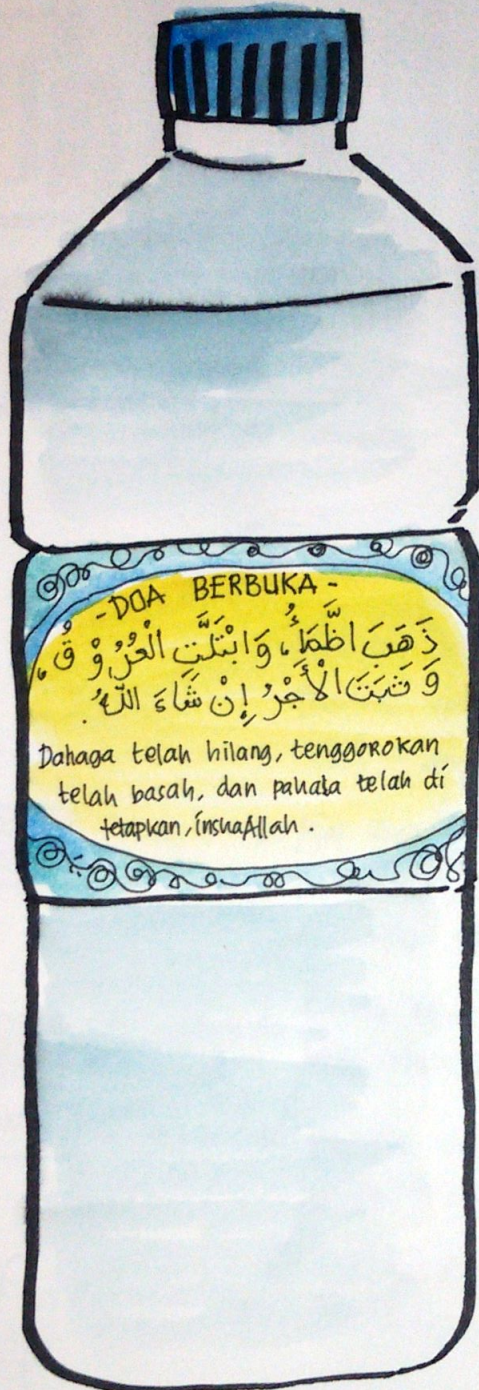 - DOA BERBUKA -
ذَهَبَ اظَّمَأُ، وَابْتَلَّتِ الْعُرُوْقُ،
وَثَبَتَ الْأَجْرُ إِنْ شَاءَ اللهُ.
Dahaga telah hilang, tenggorokan
telah basah, dan pahala telah di
tetapkan, inshaAllah.